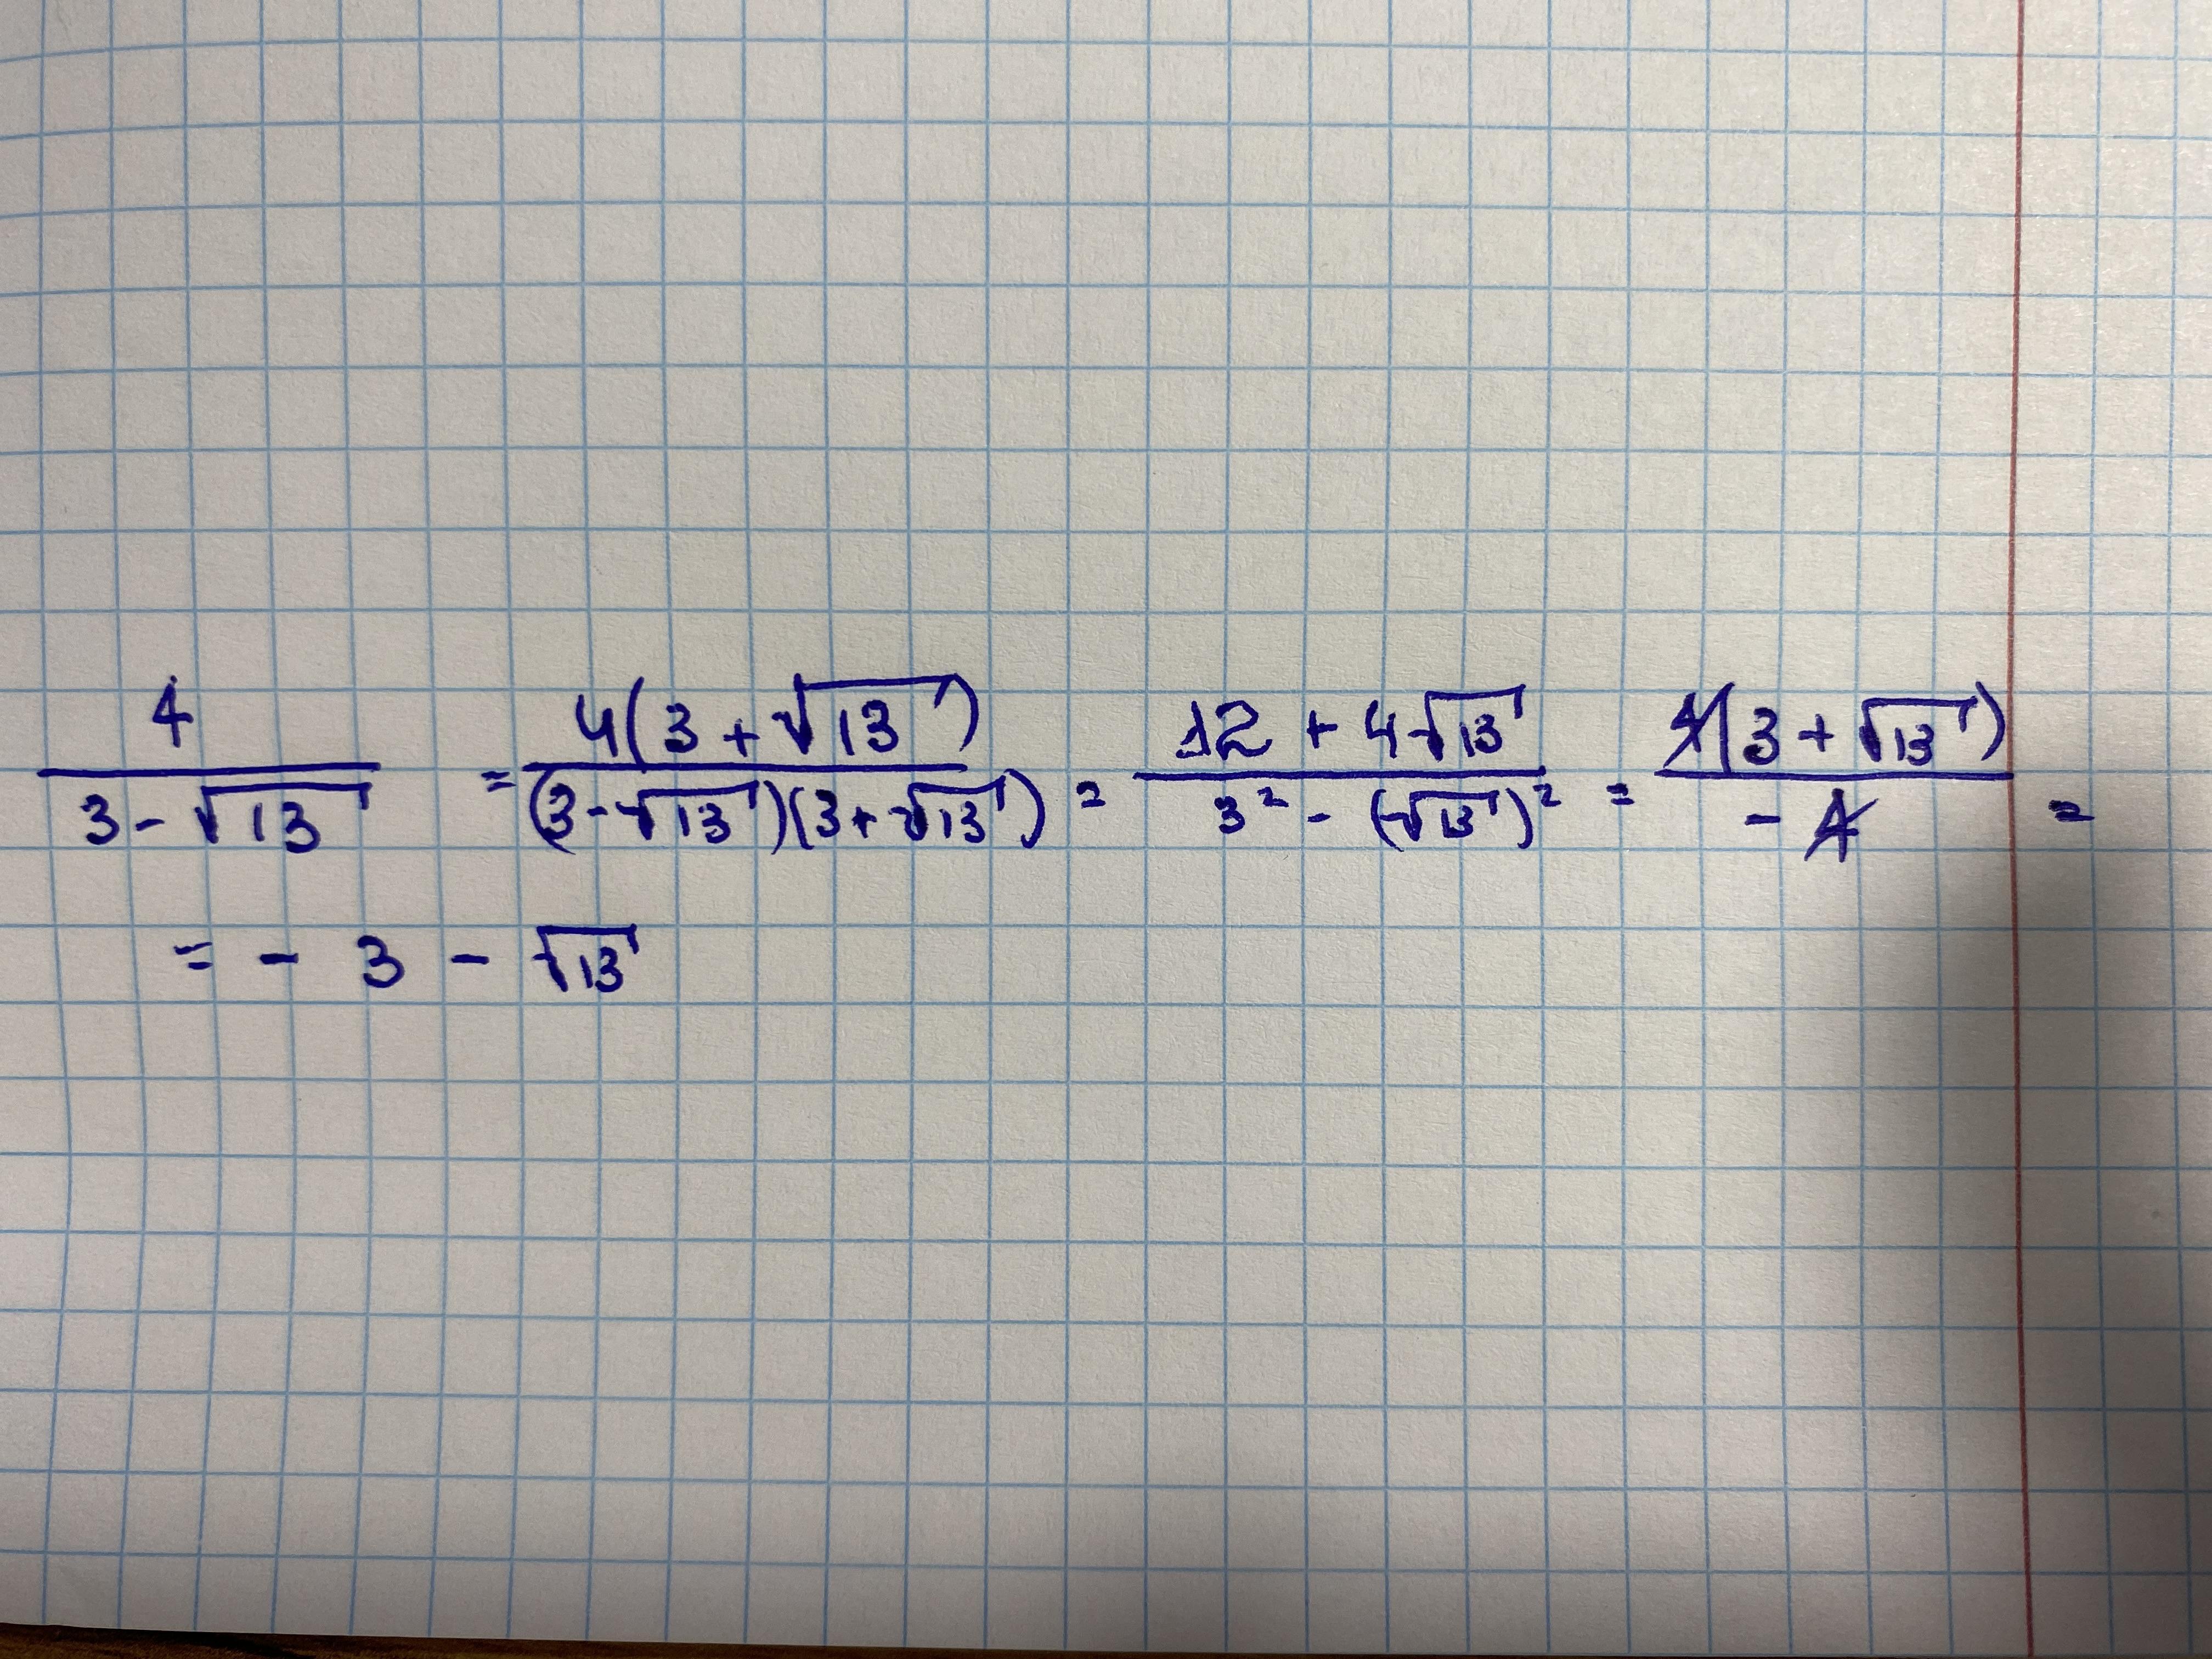 4/(3 - √13) = 4(3 + √13)/((3 - √13)(3 + √13)) = (12 + 4√13)/(3² - (√13)²) = 4(3 + √13)/(-4) =
= - 3 - √13